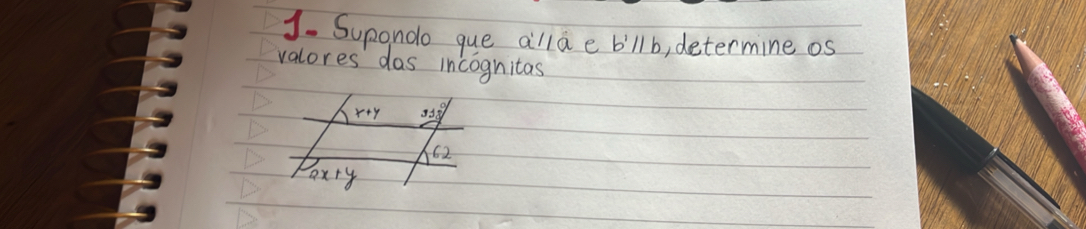 1- Supondo que a'//a e b'//b, determine os
valores das incógnitas
x+y
62
2x+y